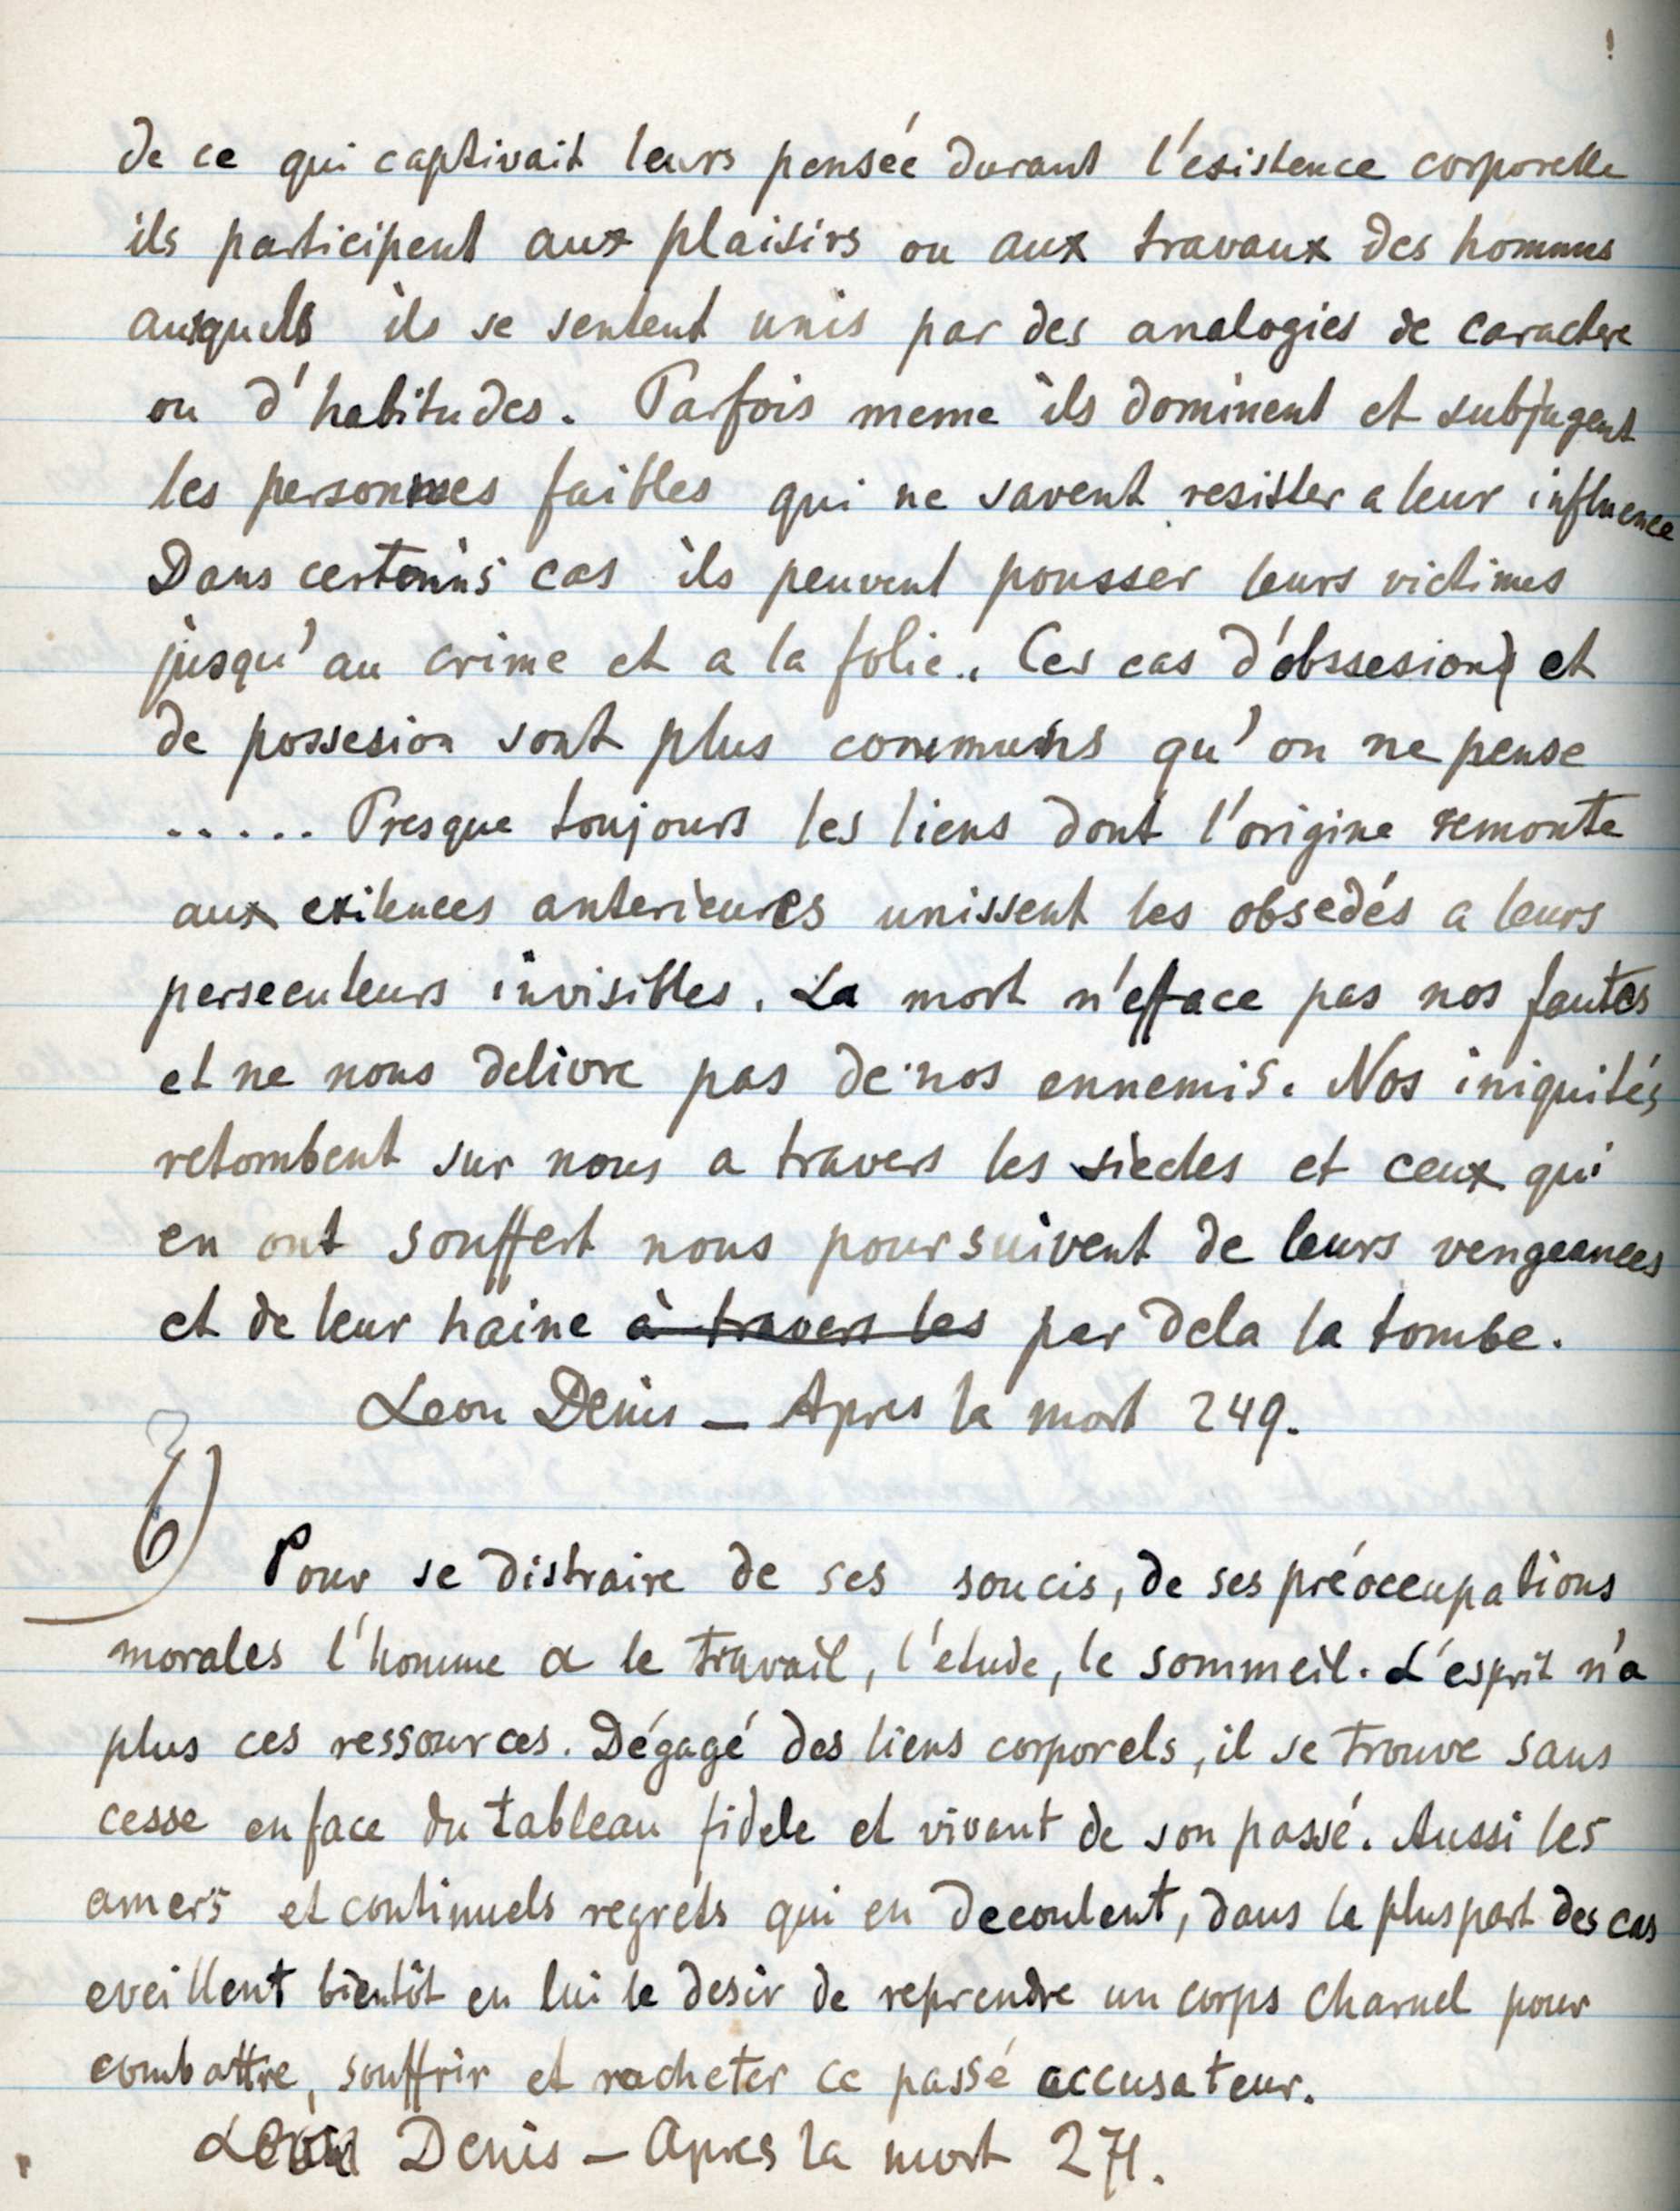 de ce qui captivait leurs pensée durant l'esistence corporelle
ils participent aux plaisirs ou aux travaux des hommes
auxquels ils se sentent unis par des analogies de caractere
ou d'habitudes. Parfois meme ils dominent et subjugent
les personnes faibles qui ne savent resister a leur influence
Dans certains cas ils peuvent pousser leurs victimes
jusqu'au crime et a la folie. Ces cas d'obssesion et
de possesion sont plus communs qu'on ne pense
..... Presque toujours les liens dont l'origine remonte
aux exitences anterieures unissent les obsedés a leurs
persecuteurs invisibles. La mort n'efface pas nos fautes
et ne nous delivre pas de nos ennemis. Nos iniquités
retombent sur nous a travers les siecles et ceux qui
en ont souffert nous poursuivent de leurs vengeances
et de leur haine à travers les par dela la tombe.
Leon Denis – Apres la mort 249.
6)
Pour se distraire de ses soucis, de ses préoccupations
morales l'homme a le travail, l'etude, le sommeil. L'esprit n'a
plus ces ressources. Dégagé des liens corporels, il se trouve sans
cesse en face du tableau fidele et vivant de son passé. Aussi les
amers et continuels regrets qui en decoulent, dans la pluspart des cas
eveillent bientôt en lui le desir de reprendre un corps charnel pour
combattre, souffrir et racheter ce passé accusateur.
Léon Denis – Apres la mort 271.